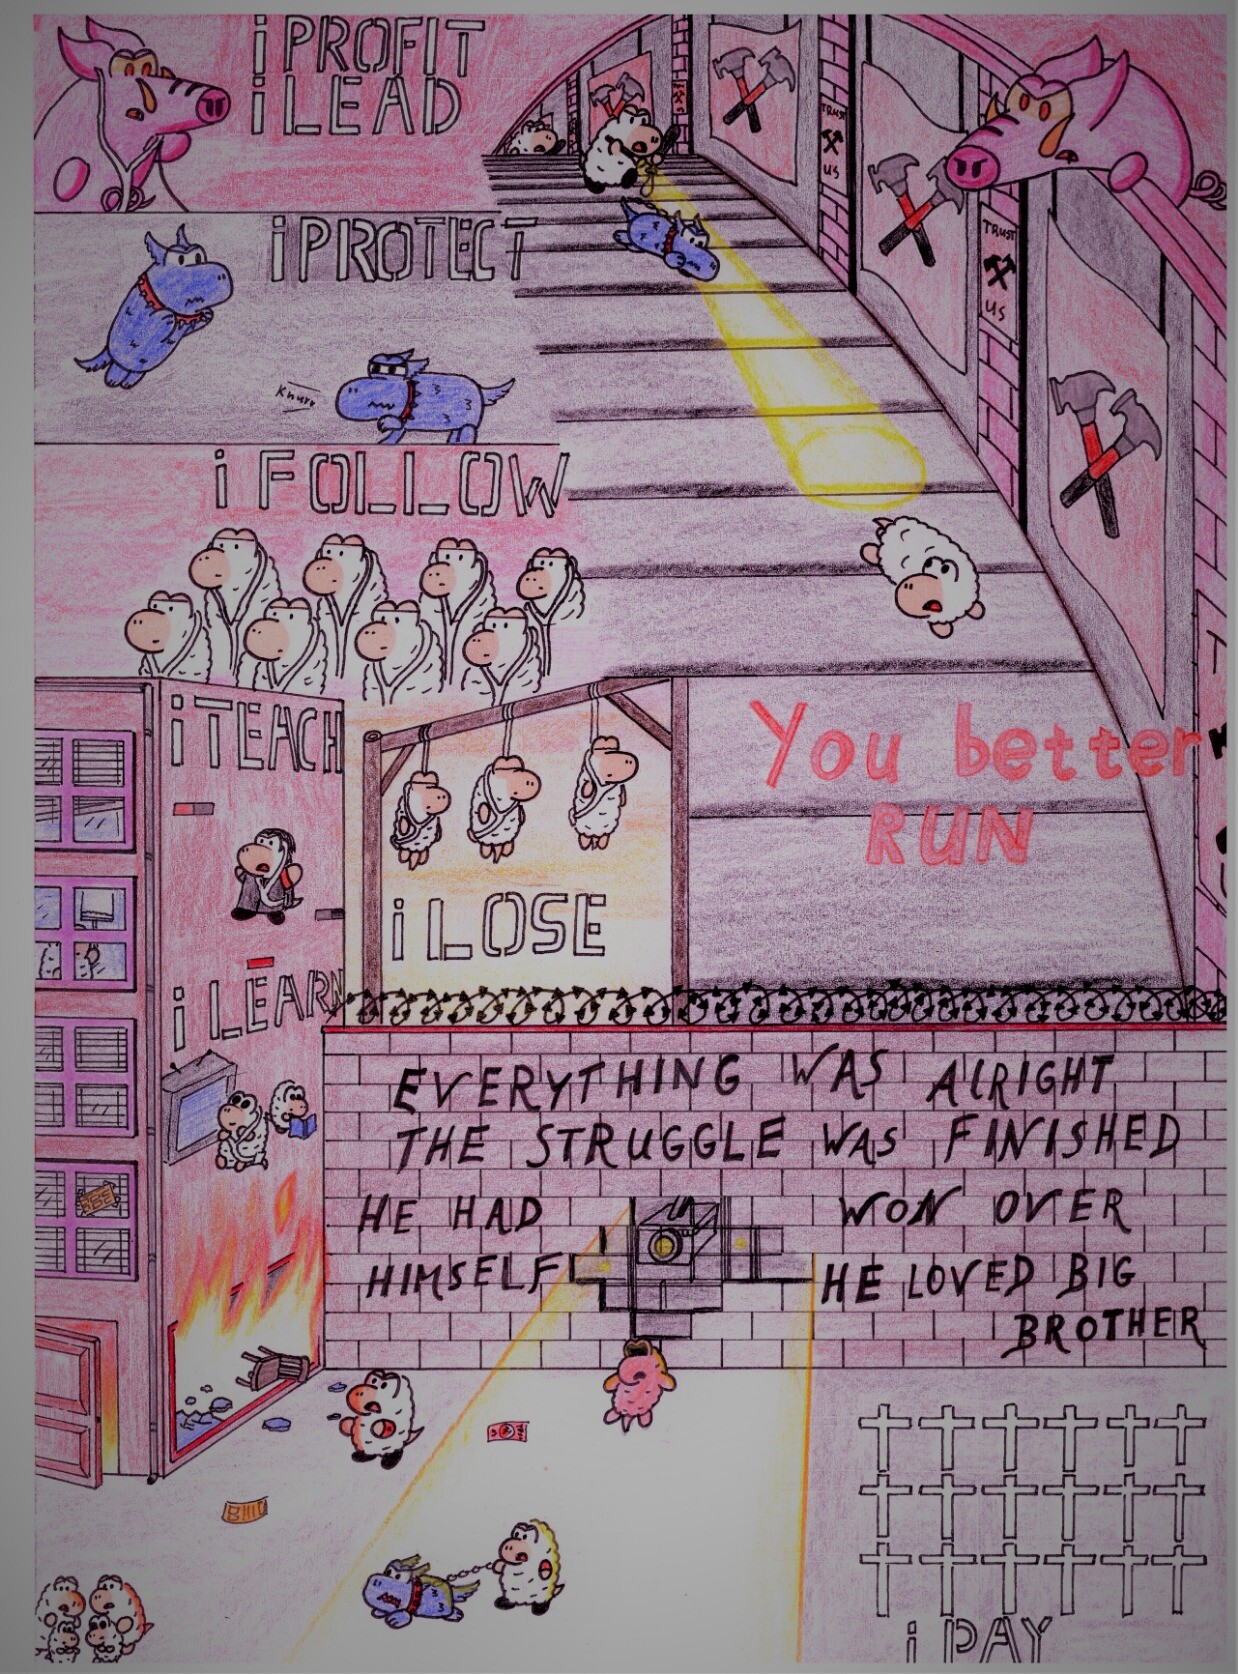 i PROFIT
i LEAD
i PROTECT
Knurr
i FOLLOW
TRUST
US
TRUST
US
i TEACH
i LOSE
i LEARN
You better
RUN
EVERYTHING WAS ALRIGHT
THE STRUGGLE WAS FINISHED
HE HAD WON OVER
HIMSELF HE LOVED BIG
BROTHER
i PAY